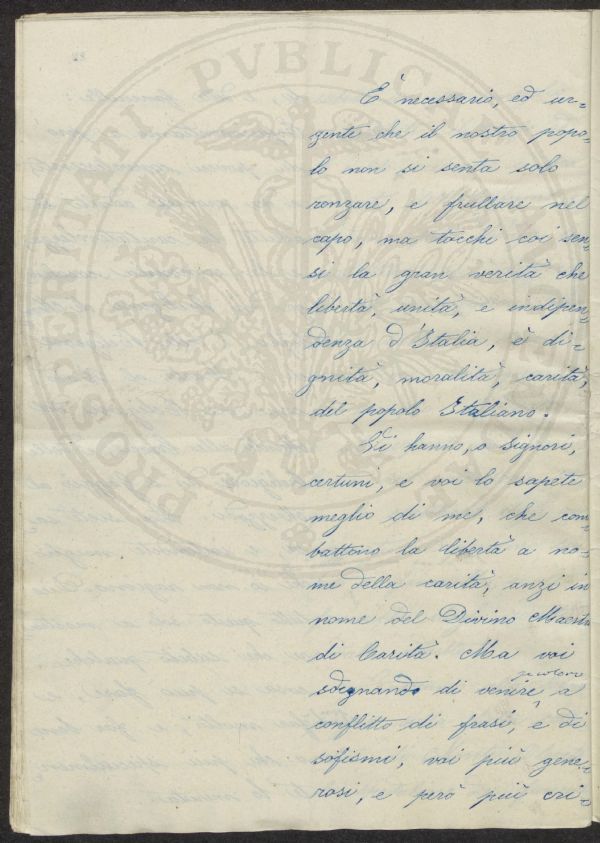 È necessario, ed ur=
gente che il nostro popo=
lo non si senta solo
ronzare, e frullare nel
capo, ma tocchi coi sen=
si la gran verità che
libertà, unità, e indipen=
denza d'Italia, è di=
gnità, moralità, carità,
del popolo Italiano.
Vi hanno, o Signori,
certuni, e voi lo sapete
meglio di me, che com=
battono la libertà a no=
me della carità, anzi in
nome del Divino Maestro
di Carità. Ma voi
sdegnando di venire a
conflitto di frasi, e di
sofismi, voi più gene=
rosi, e però più cri=
PROSPERITATI PVBLICAE